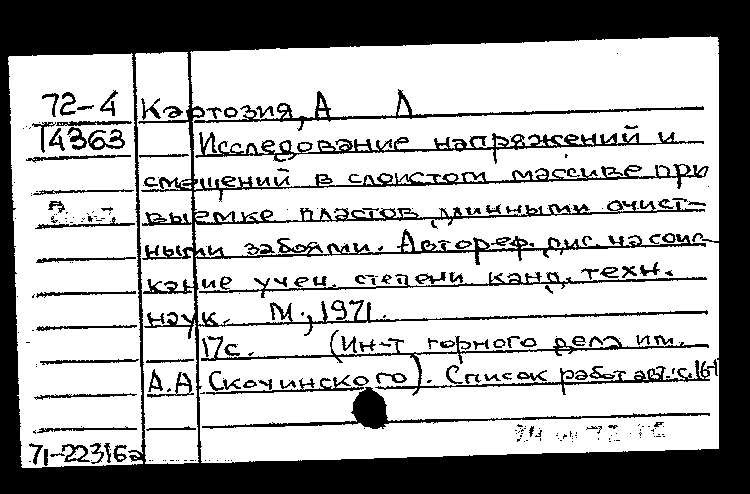 72-4 Картозия, А Л
14363 Исследование напряжений и
смещений в слоистом массиве при
выемке пластов длинными очист-
ными забоями. Автореф. дис. на соис-
кание учен. степени канд. техн.
наук. М., 1971.
17с. (Ин-т горного дела им.
А.А. Скочинского). Список работ авт.: с. 16-1
71-22316а